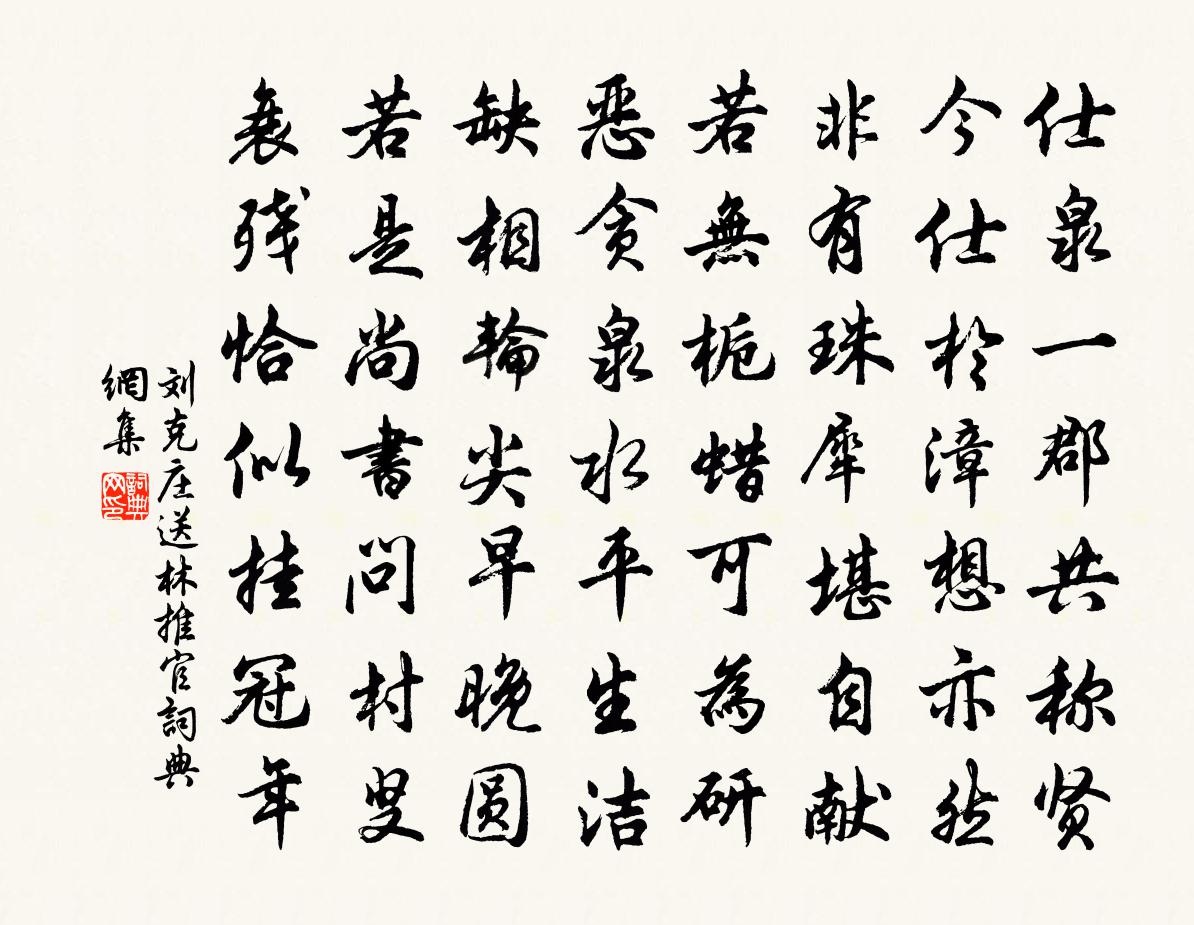 仕泉一郡共称贤
今仕於漳想亦然
非有珠犀堪自献
若無栀蜡可為研
恶贪泉水平生洁
缺相輪尖早晚圆
若是尚書問村叟
衰残恰似挂冠年
刘克庄送林推官詞典
網集
詞典
网印